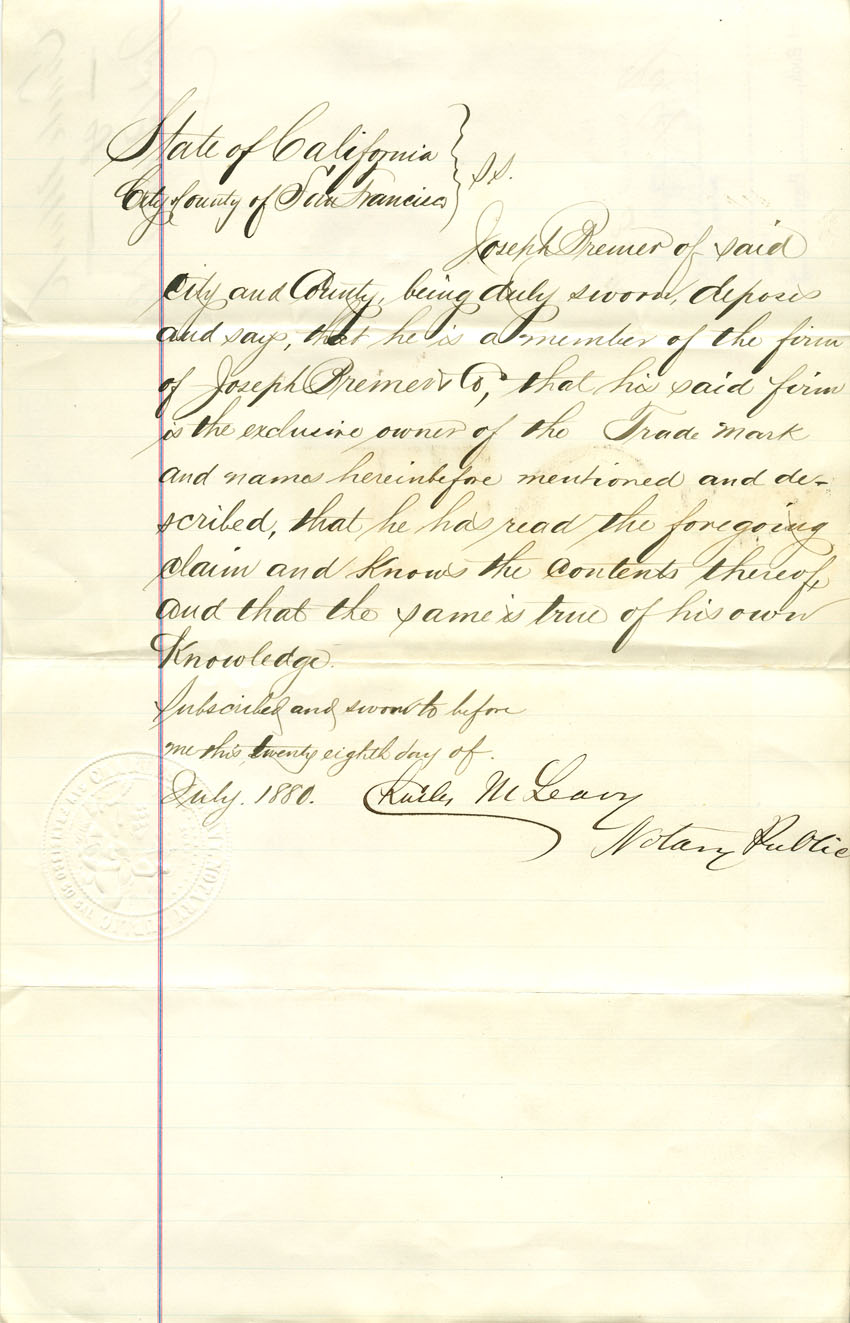 State of California } ss.
City & County of San Francisco
Joseph Bremer of said
City and County, being duly sworn, deposes
and says, that he is a member of the firm
of Joseph Bremer & Co, that his said firm
is the exclusive owner of the Trade Mark
and names hereinbefore mentioned and de-
scribed, that he has read the foregoing
claim and knows the contents thereof,
and that the same is true of his own
Knowledge.
Subscribed and sworn to before
me this, twenty eighth day of.
July. 1880.
Notary Public
NOTARY PUBLIC